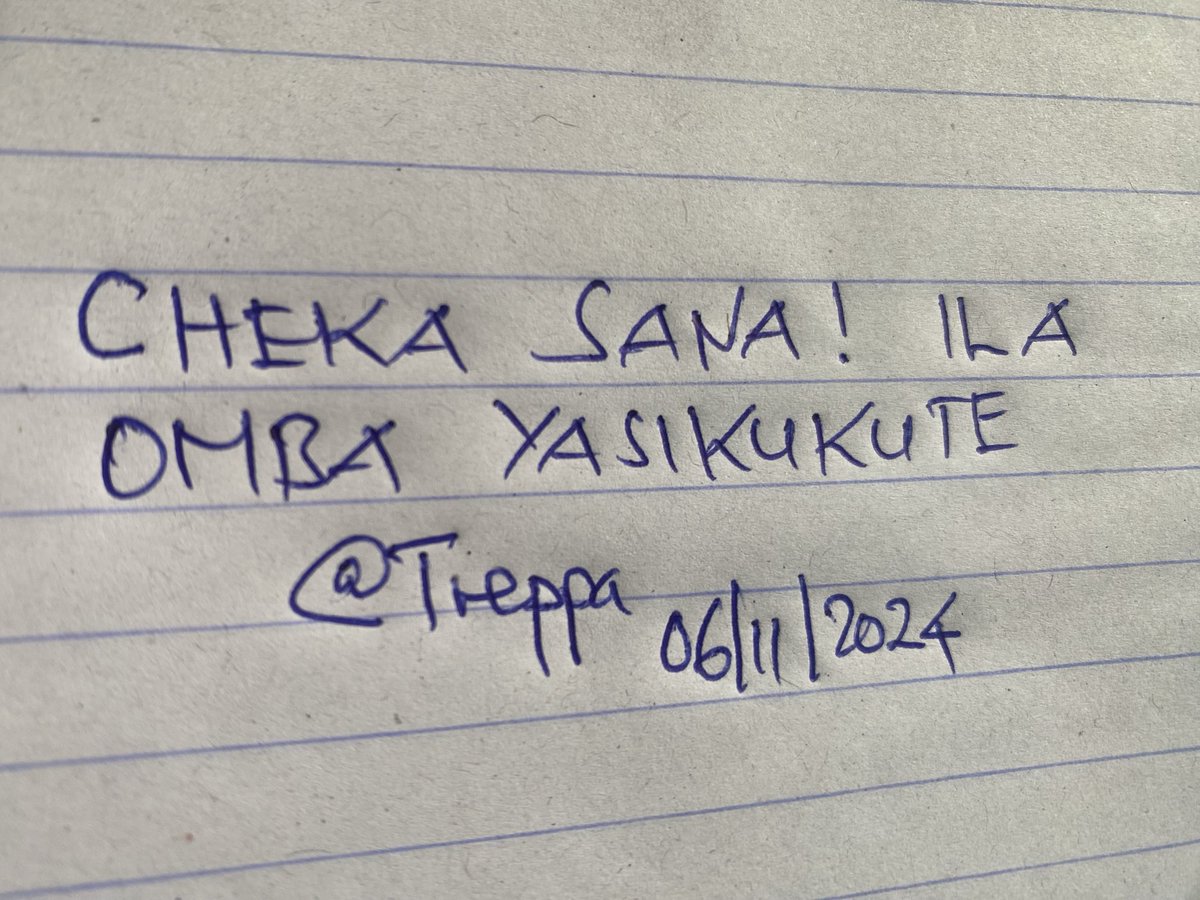 CHEKA SANA! ILA
OMBA YASIKUKUTE
@Treppa 06/11/2024